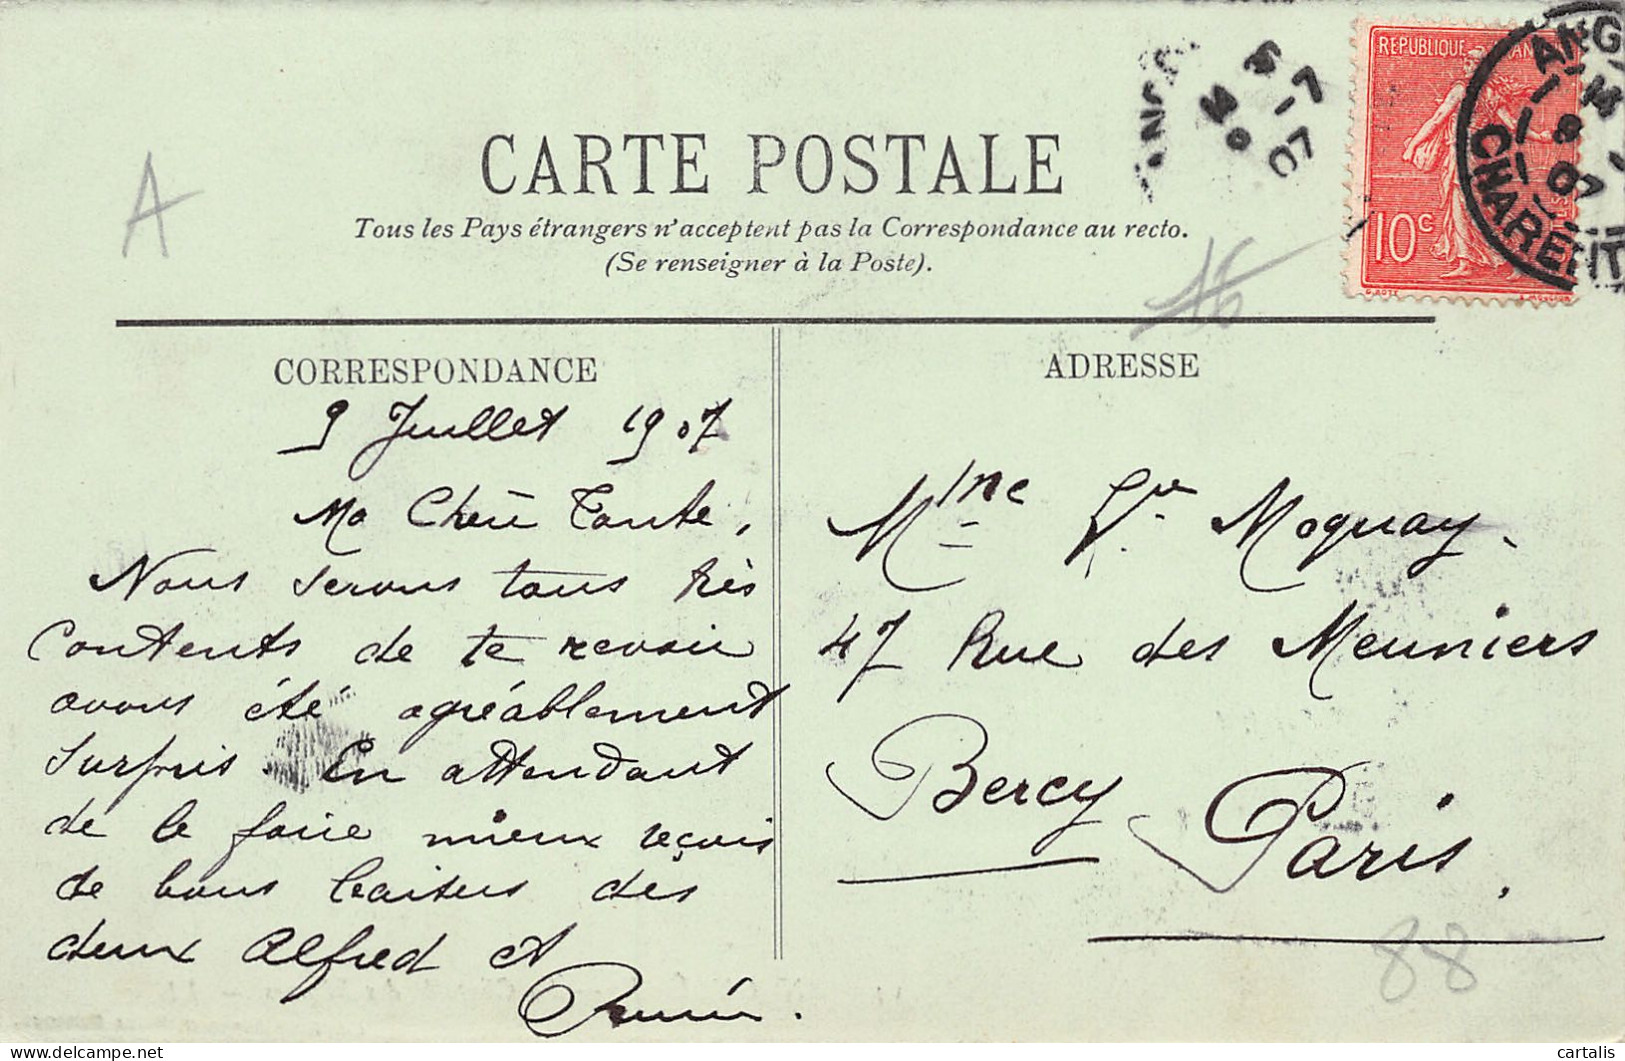 CARTE POSTALE
Tous les Pays étrangers n'acceptent pas la Correspondance au recto.
(Se renseigner à la Poste).
A
16
REPUBLIQUE
10c
ANG
CHARENT
07
7
07
CORRESPONDANCE
9 Juillet 1907
Ma Chère Tante,
Nous serons tous très
contents de te revoir
avons été agréablement
surpris. En attendant
de le faire mieux reçois
de bons baisers des
deux Alfred et
ADRESSE
Mme Vve Moquay.
47 Rue des Meuniers
Bercy
Paris.
88
cartalis